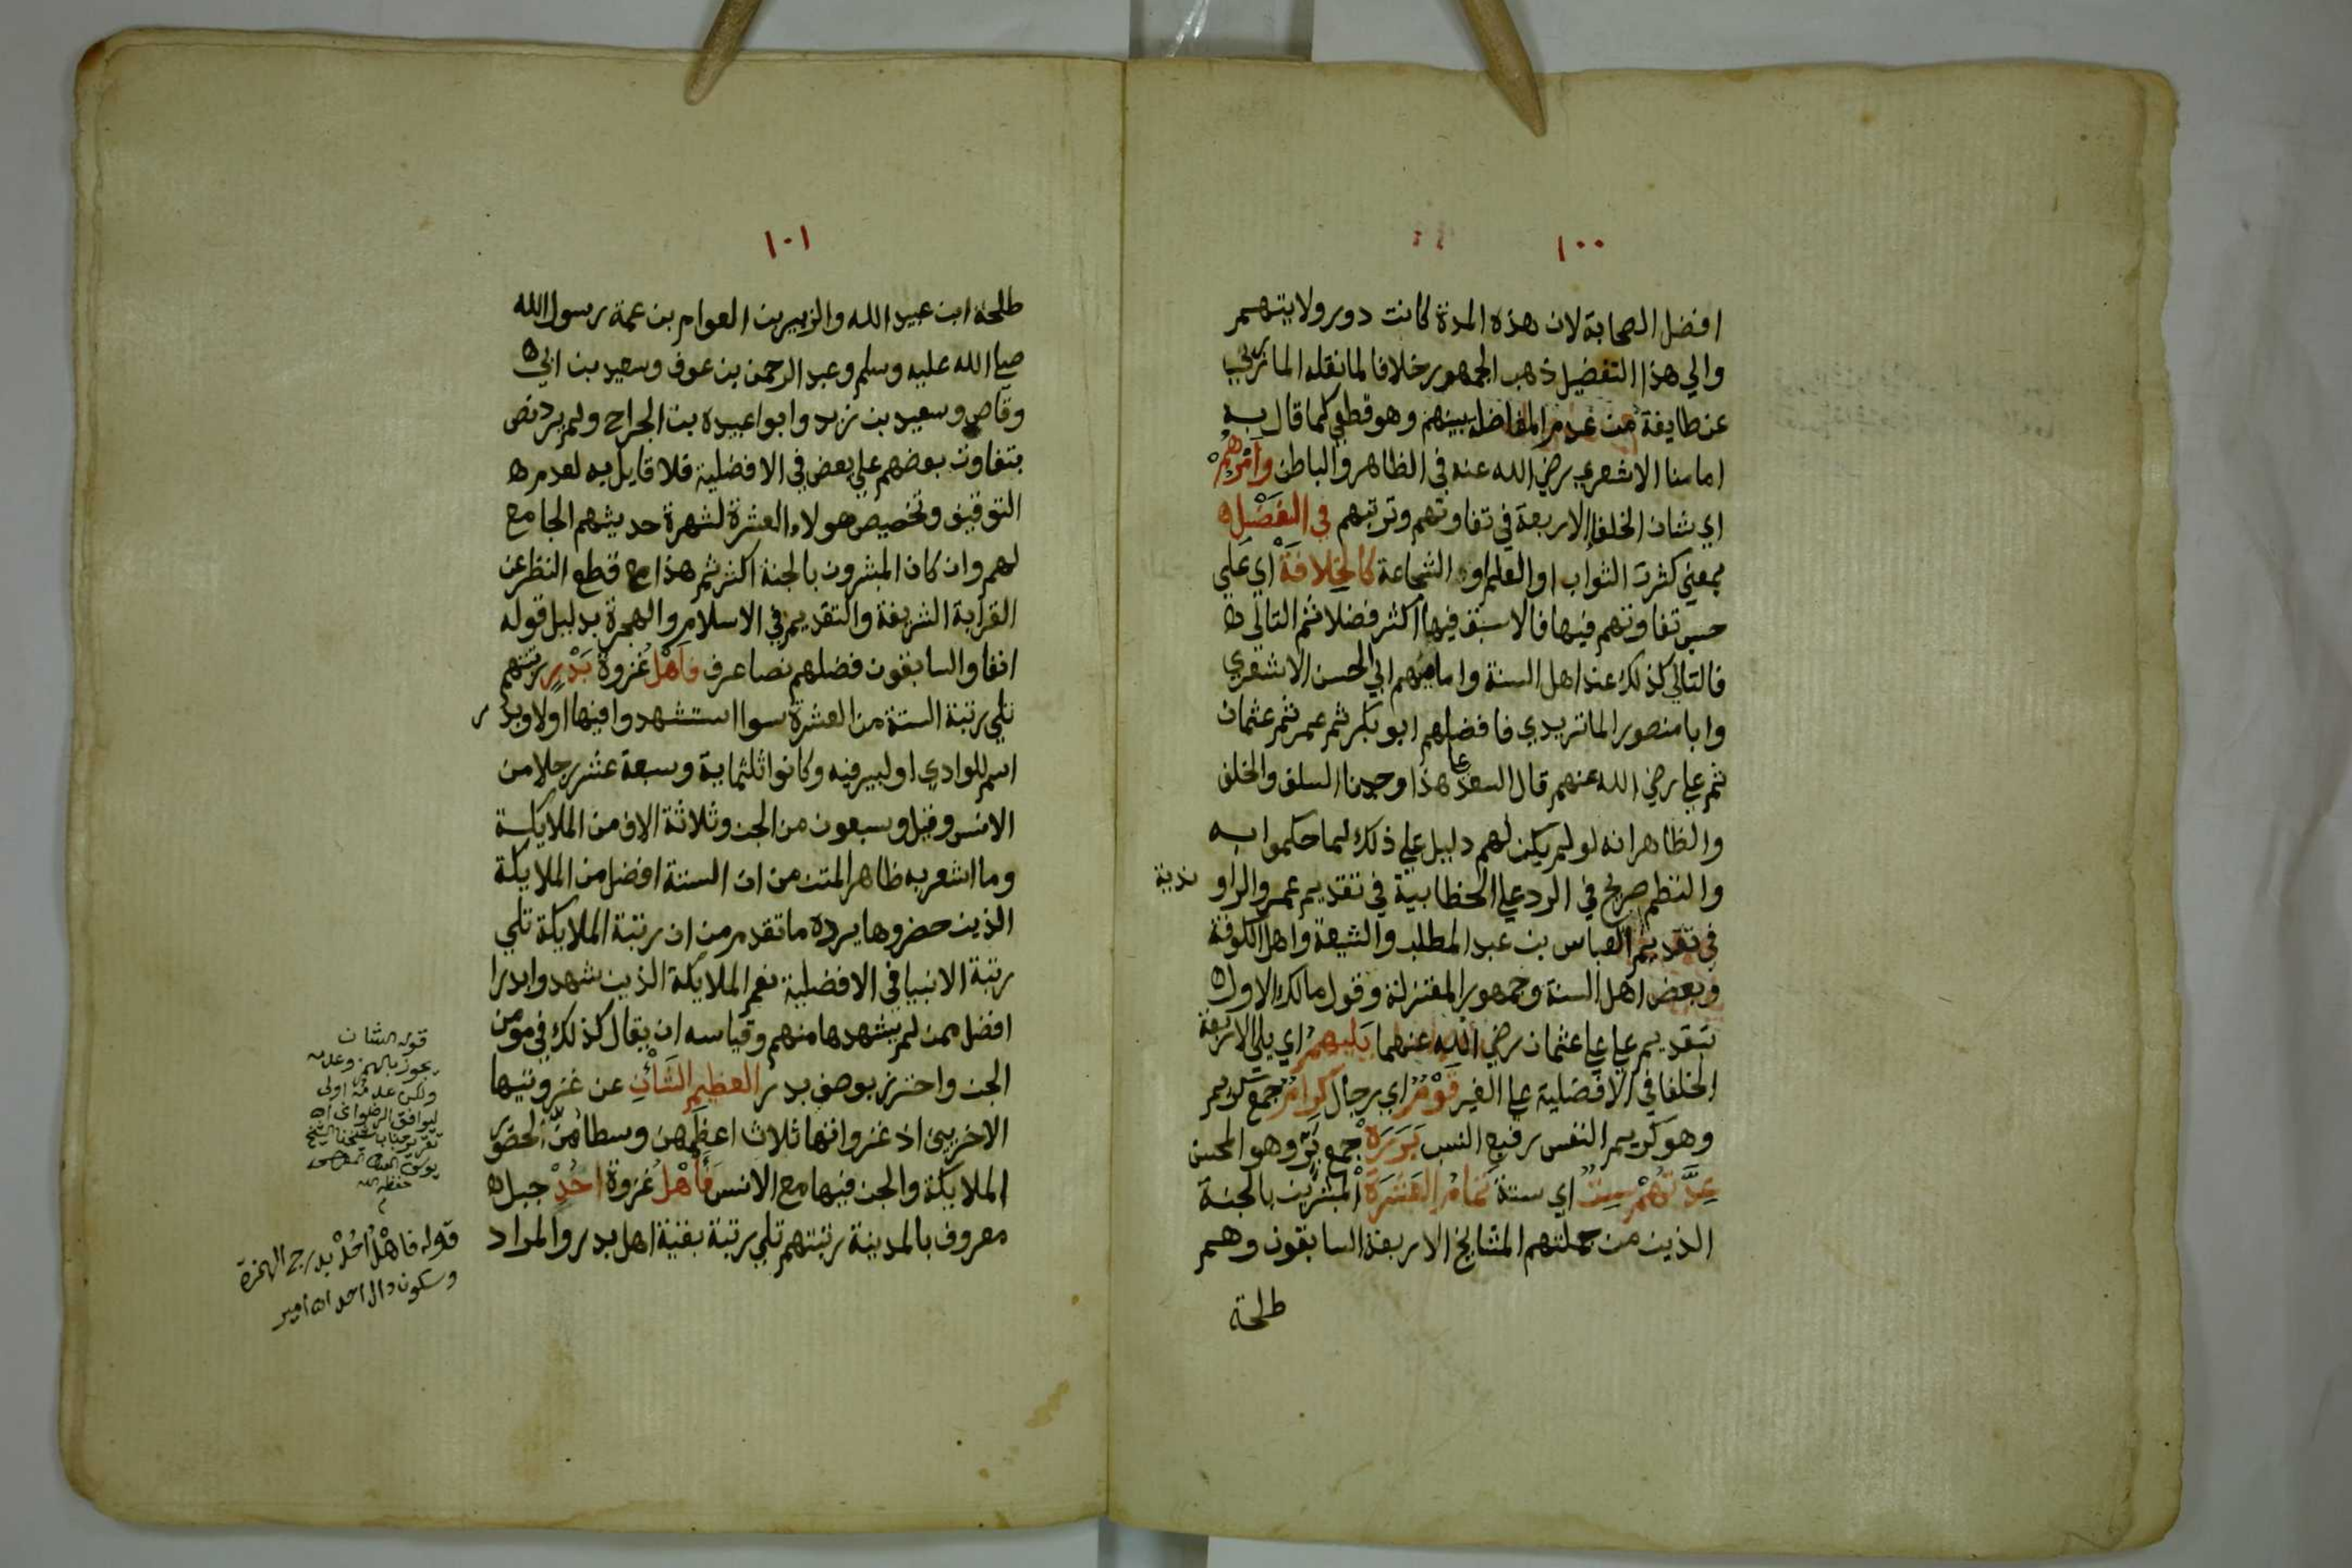 ١٠٠
افضل الصحابة لان هذه المدة كانت دورولايتهم
والي هذا التفضيل ذهب الجمهور خلافا لما نقله المازري
عن طايفة من عدم المفاضلة بينهم وهو قطعي كما قال به
امامنا الاشعري رضي الله عنه في الظاهر والباطن وَاَمْرُهُمْ
اي شان الخلفا الاربعة في تفاوتهم وترتبهم في الفَضْلِ
بمعني كثرت الثواب او العلم او الشجاعة كَالخِلَافَةْ اي علي
حسب تفاوتهم فيها فالاسبق فيها اكثر فضلا ثم التالي
فالتالي كذلك عند اهل السنة وامامهم ابي الحسن الاشعري
وابا منصور الماتريدي فافضلهم ابو بكر ثم عمر ثم عثمان
ثم علي رضي الله عنهم قال السعد علي هذا وجدنا السلف والخلف
والظاهر انه لو لم يكن لهم دليل علي ذلك لما حكموا به
والنظم صريح في الرد علي الخطابية في تقديم عمر والراوندية
في تقديم العباس بن عبد المطلب والشيعة واهل الكوفة
وبعض اهل السنة وجمهور المعتزلة وقول مالك الاول
بتقديم علي علي عثمان رضي الله عنهما يَليهِمُ اي يلي الاربعة
الخلفا في الافضلية علي الغير قَوْمٌ اي رجال كِرَامٌ جمع كريم
وهو كريم النفس رفيع النسب بَرَرَهْ جمع بَرّ وهو المحسن
عِدَّتُهُمْ سِتٌّ اي ستة تَمَامُ العَشَرَةْ المبشرين بالجنة
الذين من جملتهم المشايخ الاربعة السابقون وهم
طلحة
١٠١
طلحة ابن عبيد الله والزبير بن العوام بن عمة رسول الله
صلي الله عليه وسلم وعبد الرحمن بن عوف وسعيد بن ابي
وقاص وسعيد بن زيد وابوا عبيده بن الجراح ولم يرد نص
بتفاوت بعضهم علي بعض في الافضلية فلا قايل به لعدم
التوقيف وتخصيص هولاء العشرة لشهرة حديثهم الجامع
لهم وان كان المبشرون بالجنة اكثر ثم هذا مع قطع النظر عن
القرابة الشريفة والتقديم في الاسلام والهجرة بدليل قوله
انفا والسابقون فضلهم نصا عرف فَاَهْلُ غزوة بَدْرٍ رتبتهم
تلي رتبة الستة من العشرة سوا استشهدوا فيها اولا وبدر
اسم للوادي او لبير فيه وكانوا ثلثماية وسبعة عشر رجلا من
الانس وقيل وسبعون من الجن وثلاثة الاف من الملايكة
وما اشعر به ظاهر المتن من ان الستة افضل من الملايكة
الذين حضروها يرده ما تقدم من ان رتبة الملايكة تلي
رتبة الانبيا في الافضلية نعم الملايكة الذين شهدوا بدرا
افضل ممن لم يشهدها منهم وقياسه ان يقال كذلك في مومن
الجن واحترز بوصف بدر العظيم الشَّأْنِ عن غزوتيها
الاخريين اذ غزواتها ثلاث اعظمهن وسطاهن لحضور
الملايكة والجن فيها مع الانس فَأَهْلُ غزوة احُدْ جبل
معروف بالمدينة رتبتهم تلي رتبة بقية اهل بدر والمراد
قوله الشان
يجوز بالهمز وعدمه
ولكن عدمه اولى
ليوافق
حفظه الله
قوله فاهْل اُحُدْ بدرج الهمزة
وسكون دال احد اه امير